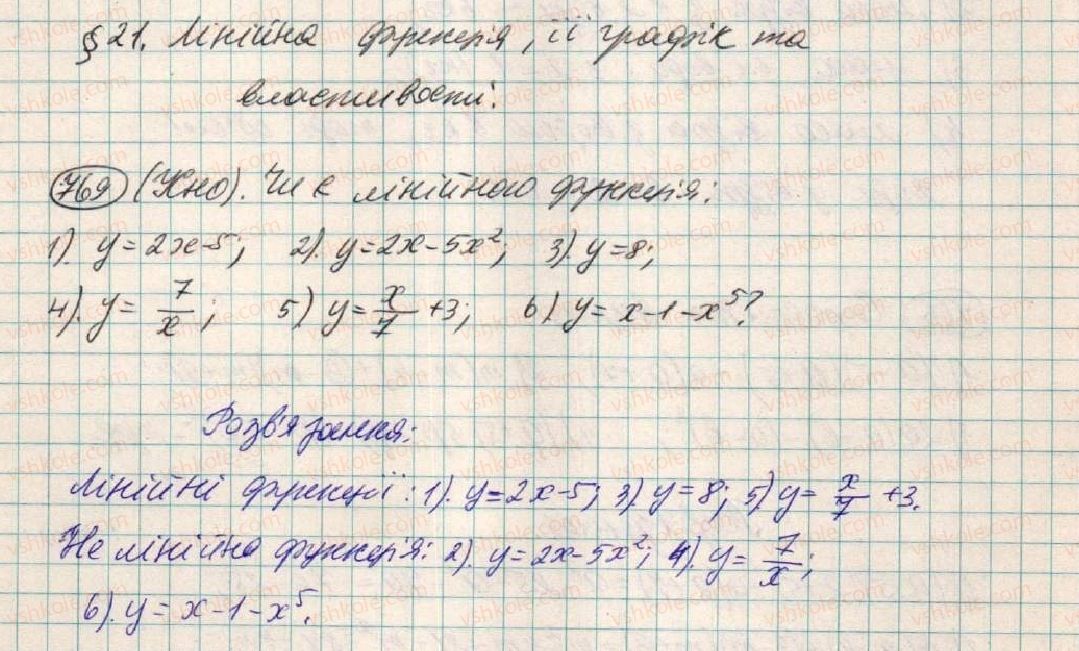 § 21. Лінійна функція, її графік та
властивості.
769 (Усно). Чи є лінійною функція:
1). y = 2x-5; 2). y = 2x - 5x²; 3). y = 8;
4). y = 7/x; 5) y = x/7 + 3; 6) y = x - 1 - x⁵?
Розв'язання:
Лінійні функції: 1). y = 2x - 5; 3). y = 8; 5) y = x/7 + 3.
Не лінійна функція: 2). y = 2x - 5x²; 4). y = 7/x;
6). y = x - 1 - x⁵.